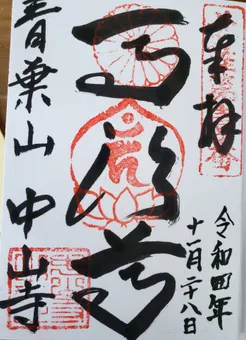 奉拝
令和四年
十一月二十八日
馬頭尊
青葉山 中山寺